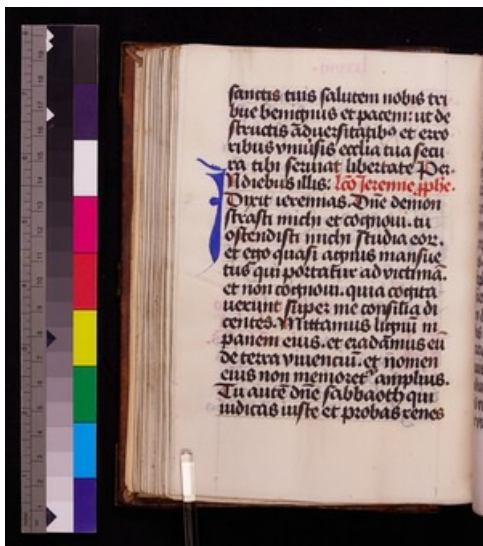 sanctis tuis salutem nobis tri
bue benignus et pacem: ut de
structis aduersitatibꝰ et erro
ribus vniūsis ecclīa tua secu
ra tibi seruiat libertate Per.
In diebus illis: lc̄o Jeremie ꝓphe.
Dixit ieremias. Dn̄e demon
strasti michi et cognoui. tu
ostendisti michi studia eoꝝ.
et ego quasi agnus mansue
tus qui portatur ad victimā.
et non cognoui. quia cogita
uerunt super me consilia di
centes. Mittamus lignū in
panem eius. et eradamus eū
de terra viuenciū. et nomen
eius non memoret᷑ amplius.
Tu autē dn̄e sabbaoth qui
iudicas iuste et probas renes